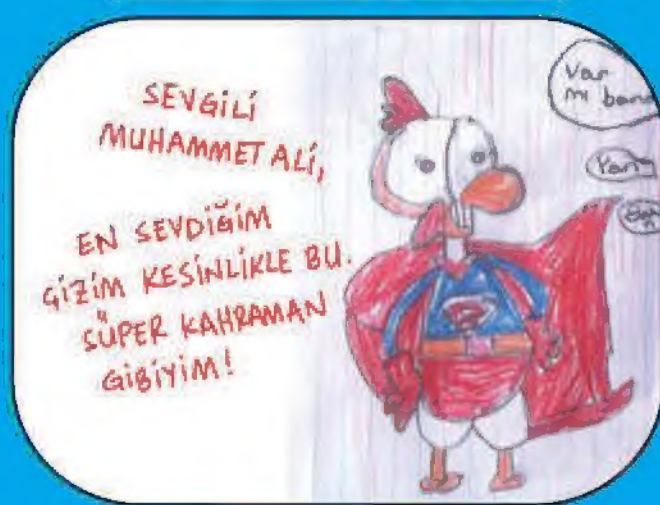 SEVGİLİ
MUHAMMET ALİ,
EN SEVDİĞİM
ÇİZİM KESİNLİKLE BU.
SÜPER KAHRAMAN
GİBİYİM!
Var
mı bana
Yan